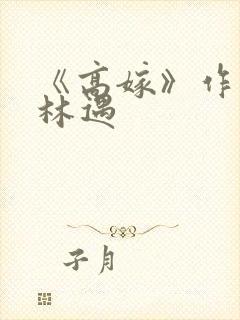 《高嫁》作
林遇
子月